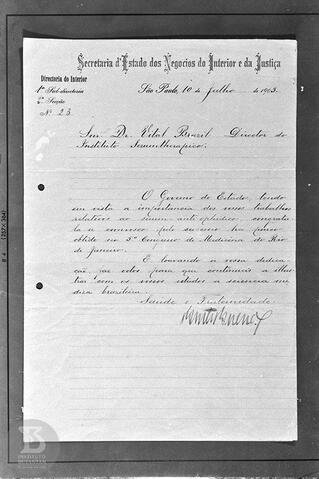 Secretaria d'Estado dos Negocios do Interior e da Justiça
Directoria do Interior
1ª Sub-directoria
2ª Secção
Nº 23
São Paulo, 10 de Julho de 1903.
Snr. Dr. Vital Brazil Director do
Instituto Serumtherapico.
O Governo do Estado, tendo
em vista a importancia dos vossos trabalhos
relativos ao serum anti-ophidico, congratula-
se comvosco pelo successo ha pouco
obtido no 5º Congresso de Medicina do Rio
de Janeiro.
E louvando a vossa dedica-
ção, faz votos para que continueis a illus-
trar com os vossos estudos a sciencia me-
dica brazileira.
Saude e Fraternidade
INSTITUTO
BUTANTAN